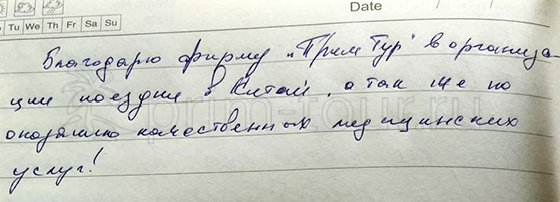 Date
Tu We Th Fr Sa Su
Благодарю фирму „Прим Тур" в организа-
ции поездки в Китай, а так же по
оказанию качественных медицинских
услуг!
prim-tour.ru